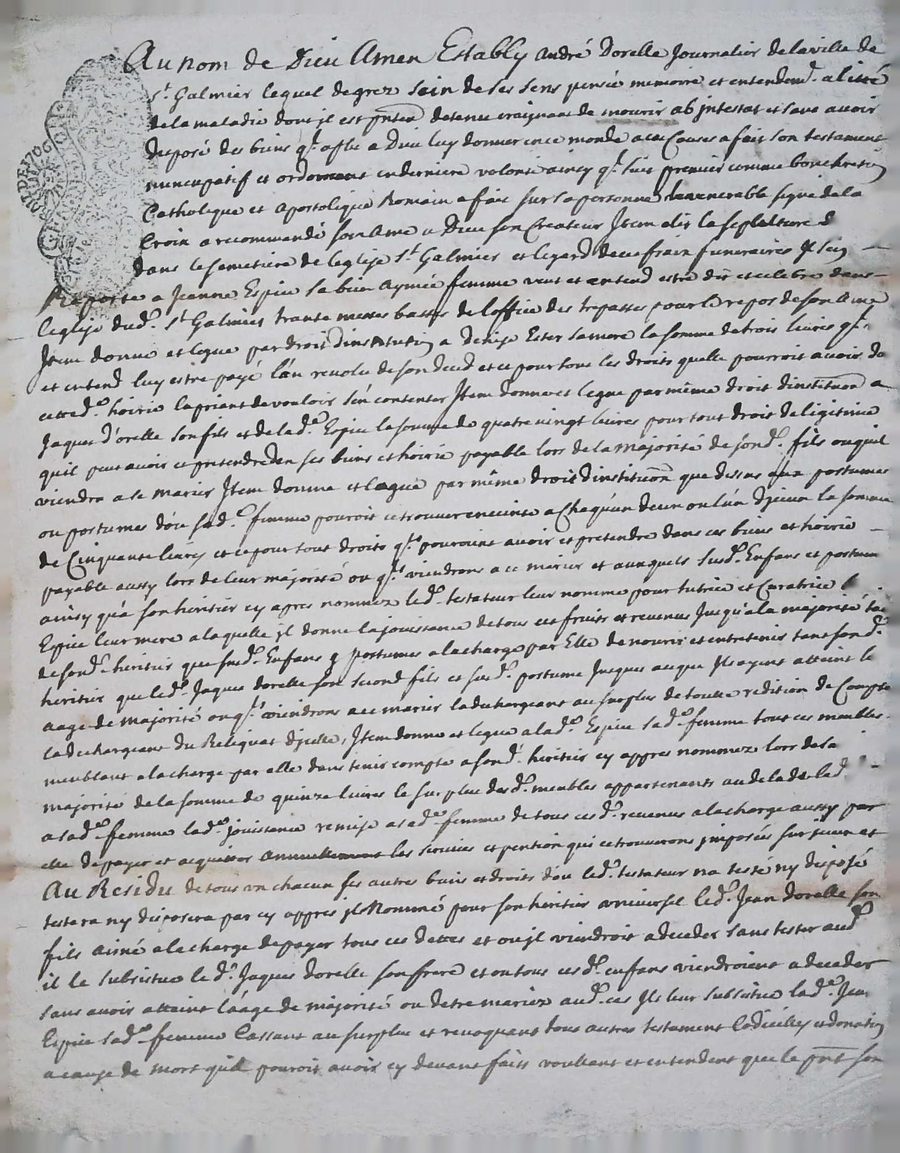 Au nom de Dieu Amen Estably André Dorelle Journalier de la ville de
St. Galmier lequel de grez sain de ses sens pensée memoire et entendemt. alitté
de la maladie dont jl est pnten detenu craignant de mourir ab jntestat et sans avoir
disposé des biens qt. a Dieu luy donner en ce monde a ces Causes a fait son testament
nuncupatif et ordonnance en derniere volonté ainsy qt. suit premier comme bon chretien
Catholique et apostolique Romain a fait sur sa personne le venerable signe de la
Croix a recommandé son Ame a Dieu son Createur Jtem eslit la sepulture
dans le semetiere de leglise St. Galmier et legard de ces fraix funeraires
a Jeanne Espice sa bien Aymée femme veut et entend estre dit et celebré dans
leglise dud. St. Galmier trante messes basses de loffice des trepasses pour le repos de son Ame
Jtem donne et legue par droit dinstitution a Denise Ester sa mere la somme de trois livres qt.
et entend luy estre payé lan revolu de son deced et ce pour tous les droits quelle pourroit avoir de
cetted. hoirie la priant de vouloir sen contenter Jtem donne et legue par même droit dinstitution a
Jaques D'orelle son fils et de lad. Espice la somme de quatre vingt livres pour tout droit de legitime
quil peut avoir et pretendre en ses biens et hoirie payable lors de la majorité de sond. fils ou quil
viendra a se marier Jtem donne et legue par même droit dinstitution que dessus aux postumes
ou postumes dou sad. femme pouroit ce trouver enceinte a Chaqu'un deux ou l'un d'jceux la somme
de Cinquante livres et ce pour tout droits qt. pouroint avoir et pretendre dans ces biens et hoirie
payable aussy lors de leur majorité ou qt. viendront a ce marier et auxquels susd. Enfans et postumes
ainsy qua son heritier cy apres nommez led. testateur leur nomme pour tutrice et Curatrice
Espice leur mere a laquelle jl donne la jouissance de tous ces fruits et revenus Jusqu'a la majorité
de sond. heritier que susd. Enfans postumes a la charge par Elle de nourir et entretenir tant sond.
heritier que led. Jaques dorelle son second fils et susd. postume Jusques a ce que Jls ayent atteint le
aage de majorité ou qt. viendront a ce marier la dechargeant au surplus de toutte redition de Compte
la dechargeant du Reliquat djcelle, Jtem donne et legue a lad. Espice sad. femme tout ces meubles
meublant a la charge par elle dans tenir compte a sond. heritier cy appres nommez lors de sa
majorité de la somme de quinze livres le surplus desd. meubles appartenants au dela de led.
a sad. femme lad. jouissance remise a sad. femme de tous cesd. revenus a la charge aussy par
elle de payer et acquitter annuellement les servies et pention qui ce trouveront jmposés sur jceux et
Au Residu de tous un chacun ses autres biens et droits dou led. testateur na testé ny disposé
testera ny disposera par cy appres jl a Nommé pour son heritier universel led. Jean dorelle son
fils ainé a la charge de payer tous ces dettes et ou jl viendroit a deceder sans tester aud.
il le substitue led. Jaques dorelle son frere et ou tous cesd. enfans viendroient a deceder
sans avoir atteint l'aage de majorité ou detre mariez aud. cas Jls leur substitue lad.
Espice sad. femme Cassant au surplus et revoquant tous autres testament Codicilles et donation
a cause de mort quil pouroit avoir cy devant faits voullant et entendent que le pnt son